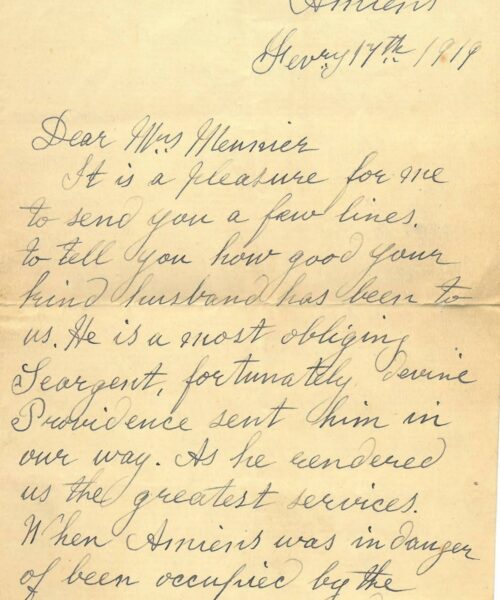 Amiens
Fevry 17th 1919
Dear Mrs Meunier
It is a pleasure for me
to send you a few lines.
to tell you how good your
kind husband has been to
us. He is a most obliging
Seargent, fortunately devine
Providence sent him in
our way. As he rendered
us the greatest services.
When Amiens was in danger
of been occupied by the